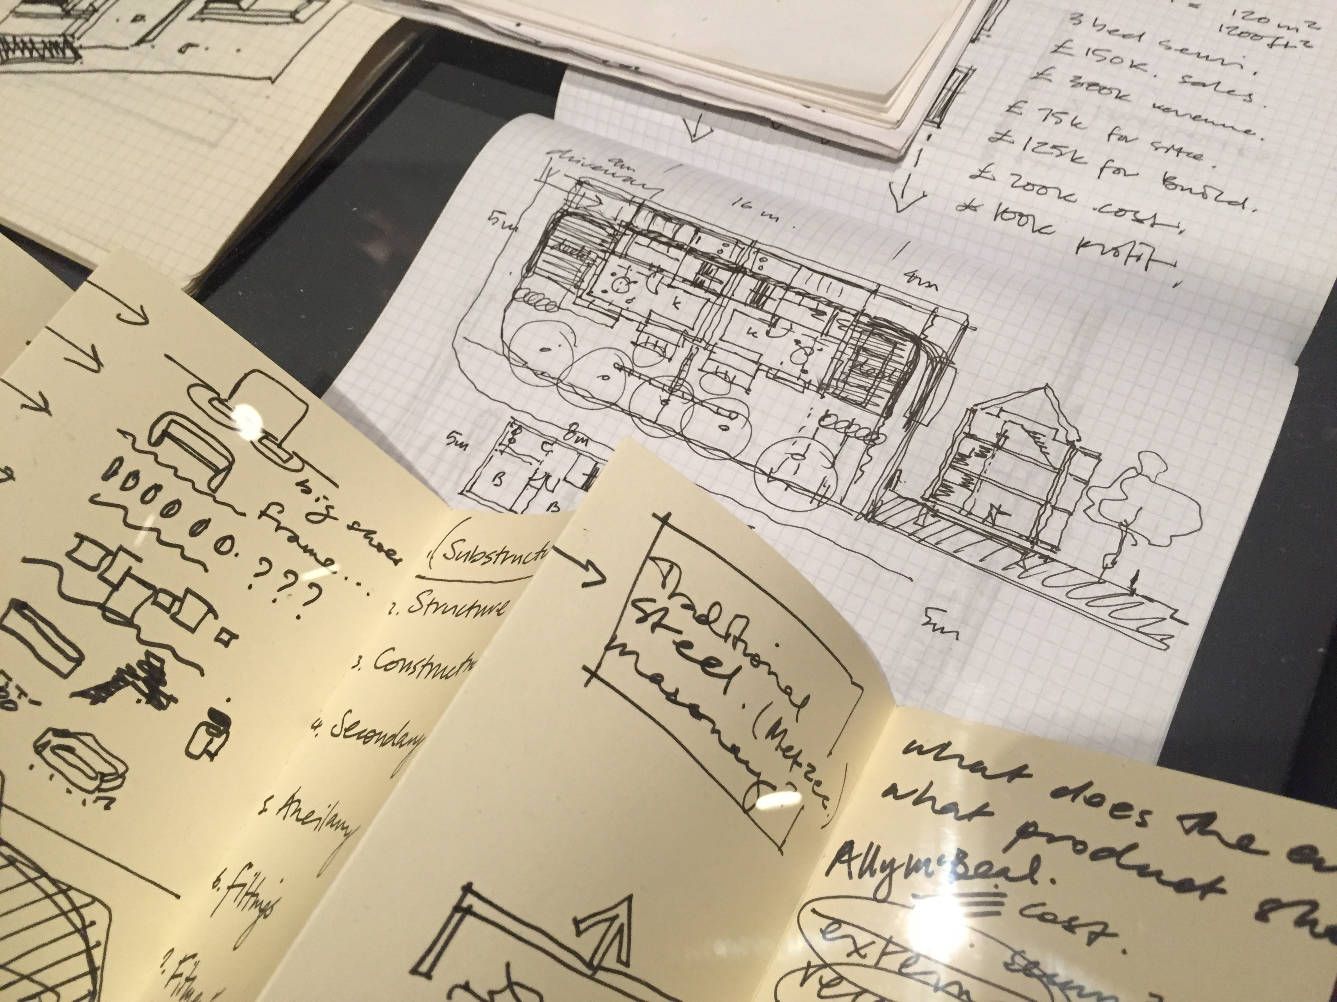 = 120m²
1200ft²
3 bed semi.
£150k. sales.
£300k revenue.
£75k for site.
£125k for Build.
£200k cost.
£100k profit.
driveway
16m.
4m
5m
K
K
5m
8m
B
B
5m
big shoes
frame...
???
1. (Substructu
2. Structure
3. Construct
4. Secondary
5. Ancillary
6. fittings
7. Fitt
Traditional
steel. (Metzec.)
masonary?
what does the
what product sh
Ally McBeal.
cost.
extern